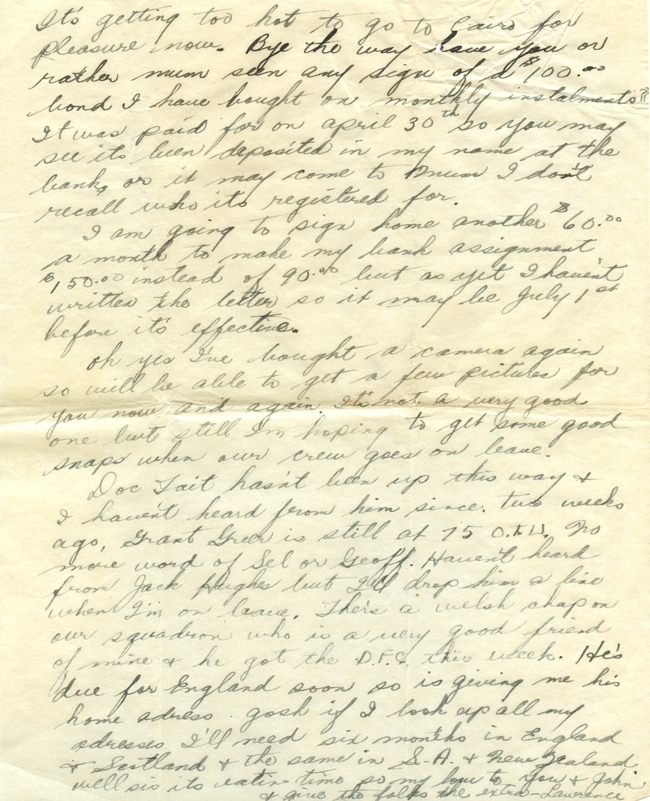 It's getting too hot to go to Cairo for
pleasure now. Bye the way have you or
rather mum seen any sign of a $100.00
bond I have bought on monthly instalments?
It was paid for on april 30th so you may
see its been deposited in my name at the
bank, or it may come to mum I don't
recall who its registered for.
I am going to sign home another $60.00
a month to make my bank assignment
$150.00 instead of 90.00 but as yet I haven't
written the letter so it may be July 1st
before it's effective.
oh yes I've bought a camera again
so will be able to get a few pictures for
you now and again. It's not a very good
one but still I'm hoping to get some good
snaps when our crew goes on leave.
Doc Tait hasn't been up this way &
I haven't heard from him since. two weeks
ago, Grant Greer is still at 75 O.T.U. No
more word of Sel or Geoff. Haven't heard
from Jack Hughes but I'll drop him a line
when I'm on leave. There's a welsh chap on
our squadron who is a very good friend
of mine & he got the D.F.C. this week. He's
due for England soon so is giving me his
home adress. gosh if I look up all my
adresses I'll need six months in England
& Scotland & the same in S.A. & New Zealand
well sis its eatin time so my love to you & John
& give the folks the extra - Lawrence